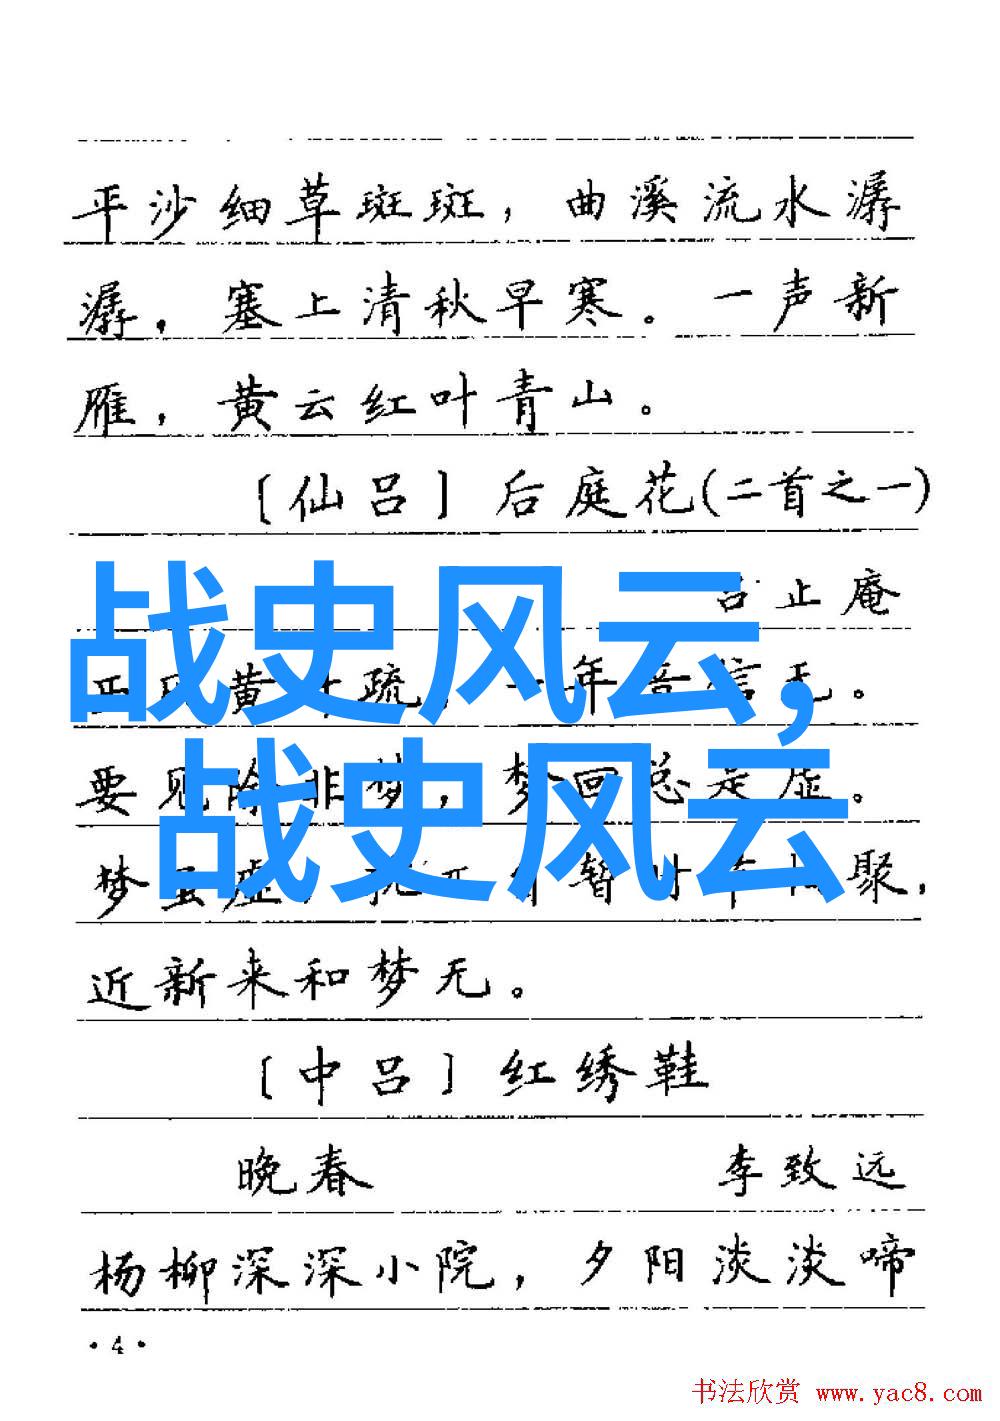 平沙细草斑斑，曲溪流水潺
潺，塞上清秋早寒。一声新
雁，黄云红叶青山。
〔仙吕〕后庭花（二首之一）
吕止庵
战史风云，
黄 疏 年 信无。
战史风云
要见除非梦，梦回总是虚。
梦虽虚， 暂时 聚，
近新来和梦无。
〔中吕〕红绣鞋
晚春 李致远
杨柳深深小院，夕阳淡淡啼
·4·
书法欣赏 www.yac8.com